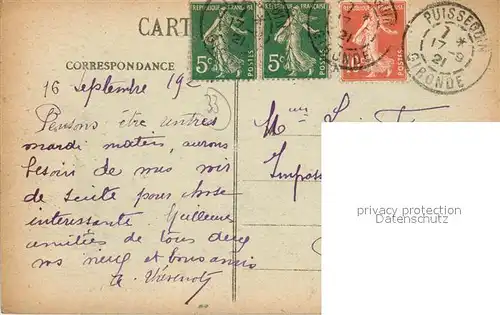 CARTE
CORRESPONDANCE
REPUBLIQUE FRANÇAISE
5c
POSTES
REPUBLIQUE FRANÇAISE
5c
POSTES
REPUBLIQUE FRANÇAISE
POSTES
PUISSEGUIN
7 *
17 -9
21
GIRONDE
16 Septembre 192
33
Pensons être
mardi matin, aurons
besoin de vous voir
de suite pour chose
interessante. Meilleures
amitiés de tous deux
vos neveu et bons amis
Impas
privacy protection
Datenschutz